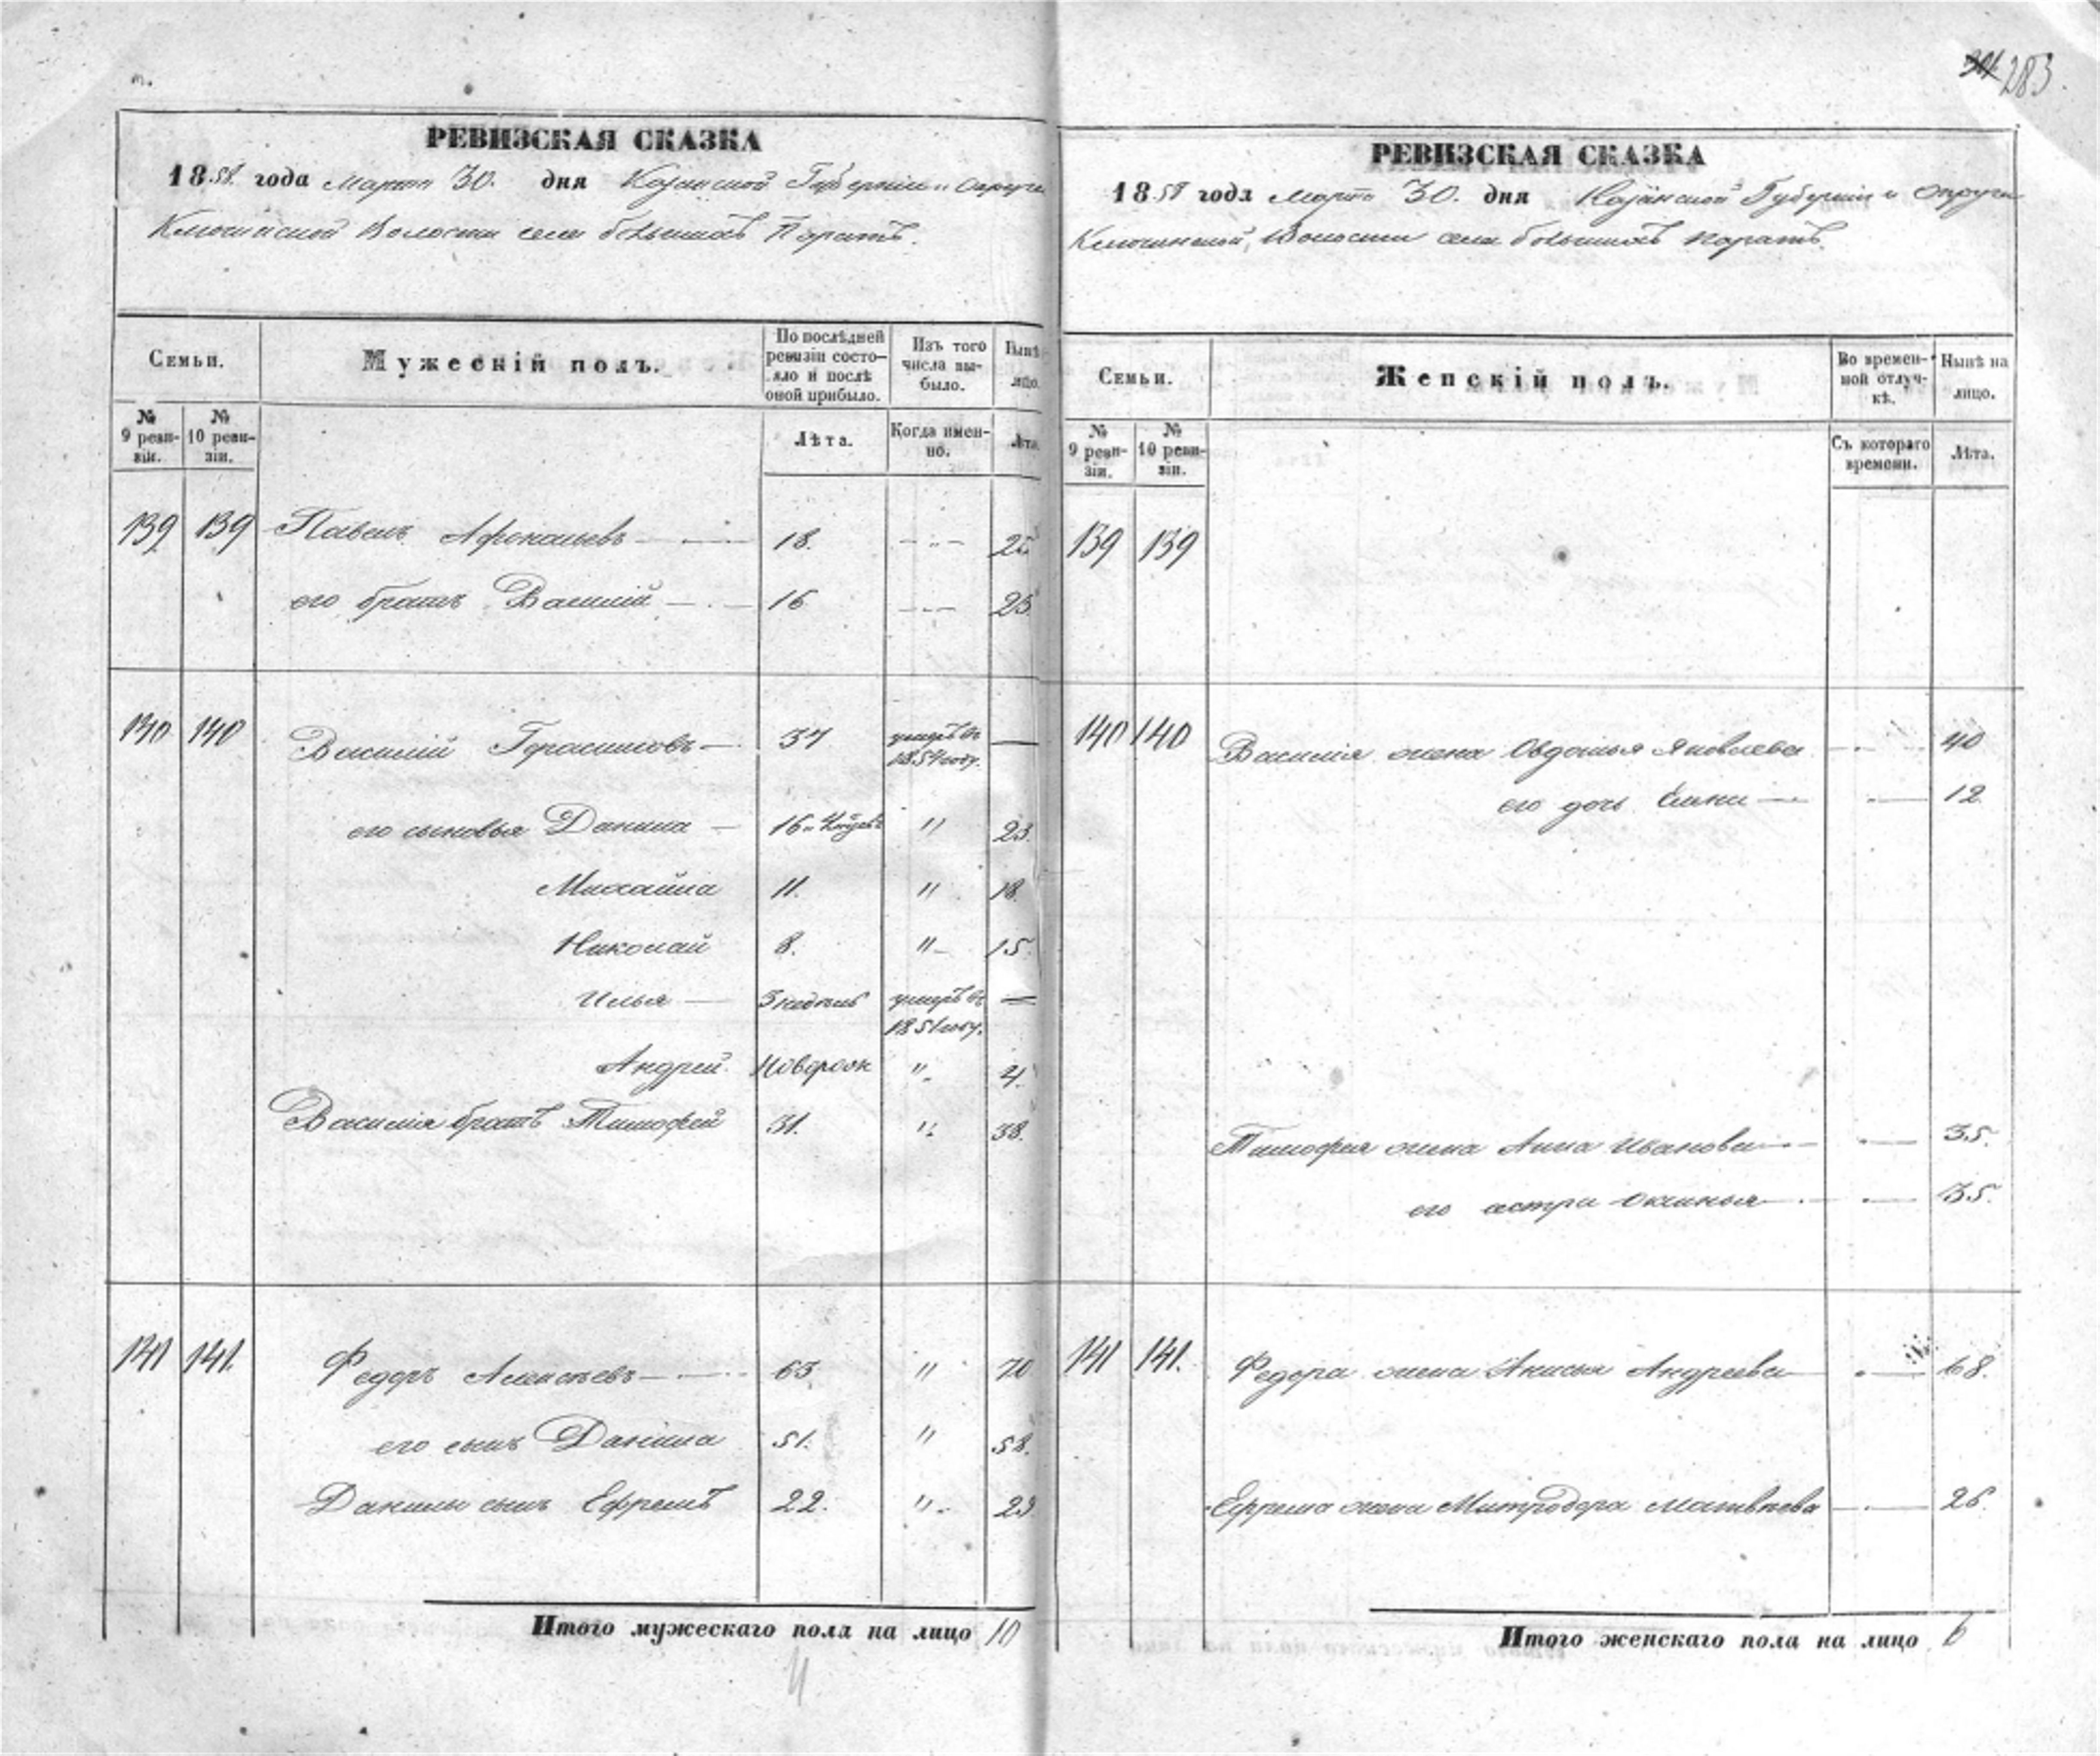 283
РЕВИЗСКАЯ СКАЗКА
1858 года Марта 30. дня Казанской Губерніи и округи
Ключинской Волости села большихъ Паратъ.
Семьи.
Мужескій полъ.
По послѣдней ревизіи состояло и послѣ оной прибыло.
Изъ того числа выбыло.
Нынѣ лицо.
№ 9 ревизіи.
№ 10 ревизіи.
Лѣта.
Когда именно.
Лѣта.
139 139 Павелъ Афонасьевъ 18. 25
его братъ Василій 16 23.
140 140 Василій Герасимовъ 37 умеръ въ 1854 году. —
его сыновья Данила 16 " 23.
Михайла 11. " 18.
Николай 8. " 15.
Илья 3 недѣли умеръ въ 1851 году. —
Андрей новорож " 4.
Василія братъ Тимофей 31. " 38.
141 141. Федоръ Алексѣевъ 63 " 70
его сынъ Данила 51. " 58.
Данилы сынъ Ефремъ 22. " 29
Итого мужескаго пола на лицо 10
РЕВИЗСКАЯ СКАЗКА
1858 года Марта 30. дня Казанской Губерніи и округи
Ключинской Волости села большихъ Паратъ.
Семьи.
Женскій полъ.
Во временной отлучкѣ.
Нынѣ на лицо.
№ 9 ревизіи.
№ 10 ревизіи.
Съ котораго времени.
Лѣта.
139 139
140 140 Василія жена Овдотья Яковлева 40
его дочь Елена 12
Тимофея жена Анна Иванова 35.
его сестра Оксинья 35.
141 141. Федора жена Анисья Андреева 68.
Ефрема жена Митродора Матвѣева 26.
Итого женскаго пола на лицо 6